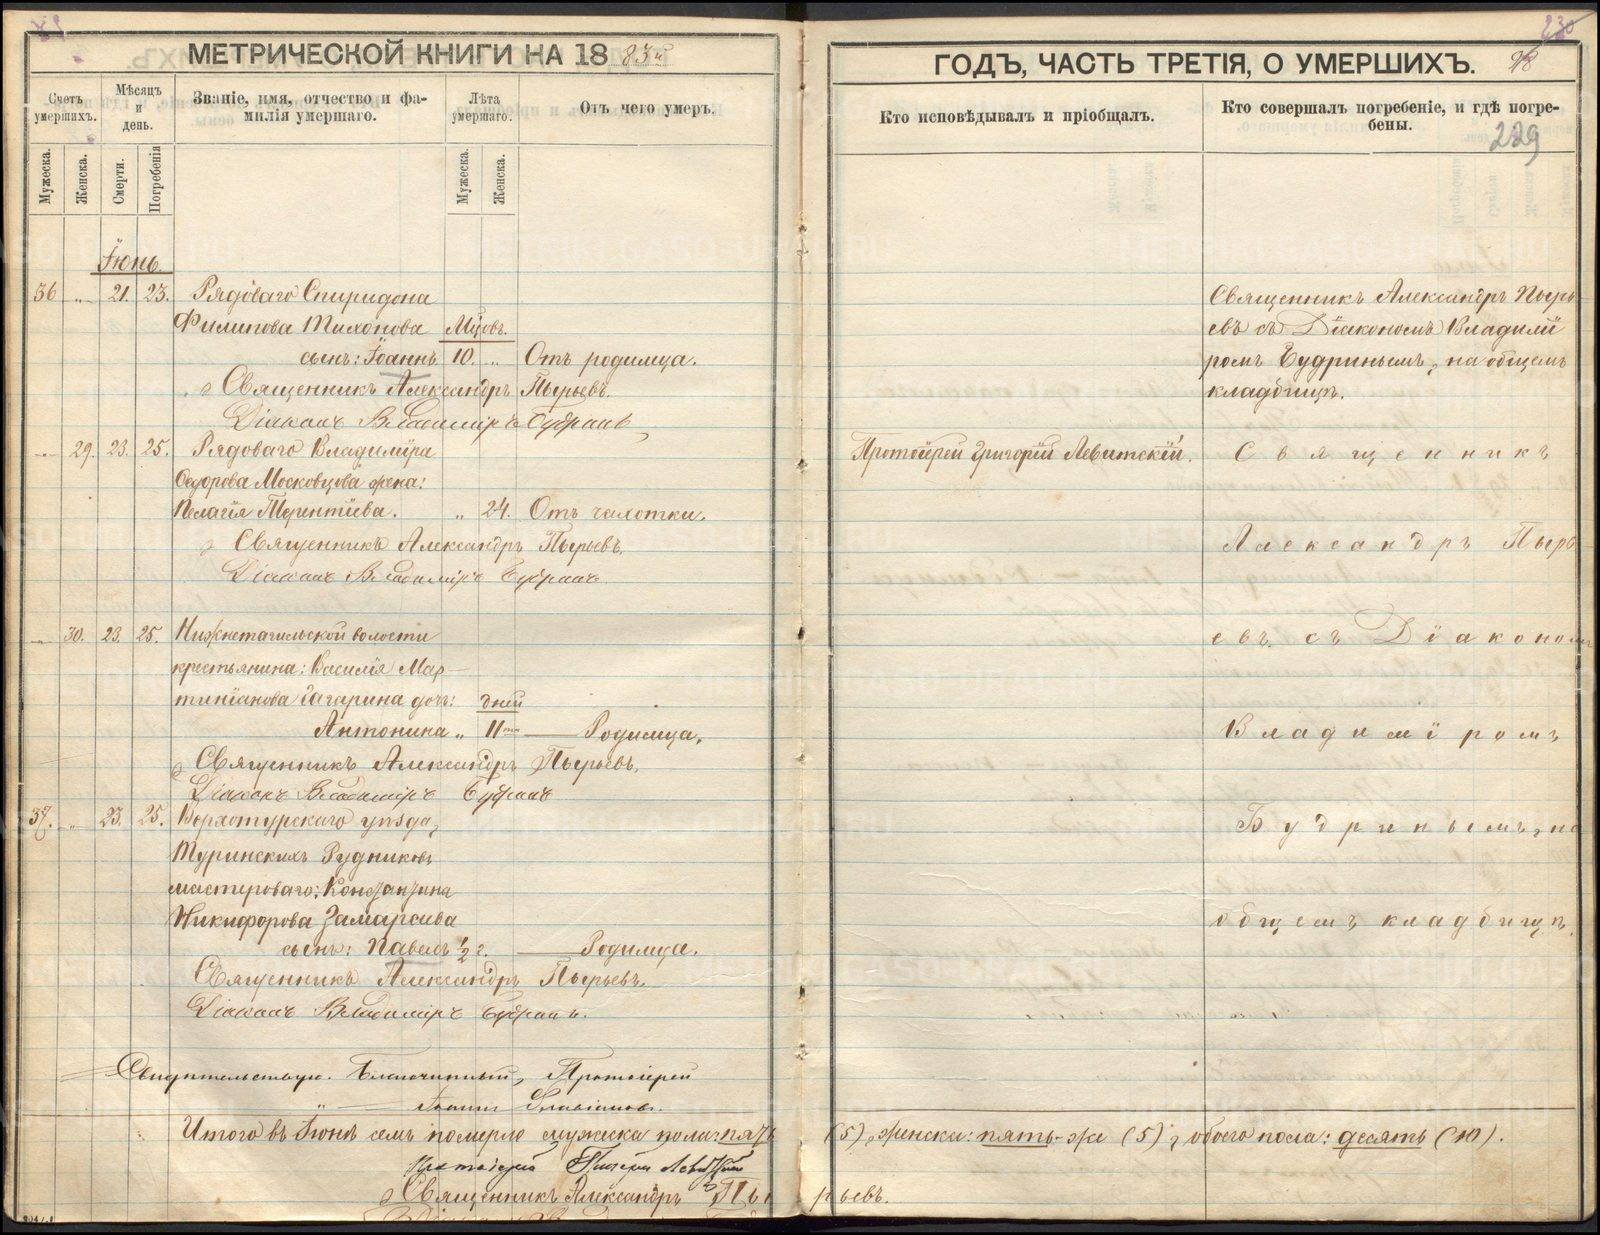 МЕТРИЧЕСКОЙ КНИГИ НА 1883й
Счетъ умершихъ.
Мѣсяцъ и день.
Званіе, имя, отчество и фа-
милія умершаго.
Лѣта умершаго.
Отъ чего умеръ.
Мужеска.
Женска.
Смерти.
Погребенія
Мужеска.
Женска.
Іюнь.
36 „ 21. 23. Рядоваго Спиридона
Филипова Тихонова Мцовъ.
сынъ: Іоаннъ 10. „ Отъ родимца.
Священникъ Александръ Пырьевъ.
Діаконъ Владиміръ Будринъ
„ 29. 23. 25. Рядоваго Владиміра
Ѳедорова Московцова жена:
Пелагія Терентіева. „ 24. Отъ чахотки.
Священникъ Александръ Пырьевъ.
Діаконъ Владиміръ Будринъ
„ 30. 23. 25. Нижнетагильской волости
крестьянина: Василія Мар-
тиніанова Гагарина дочь: дней
Антонина „ 11 — Родимца.
Священникъ Александръ Пырьевъ.
Діаконъ Владиміръ Будринъ
37. „ 23. 25. Верхотурскаго уѣзда,
Туринскихъ Рудниковъ
мастероваго: Константина
Никифорова Замараева
сынъ: Павелъ ½ г. — Родимца.
Священникъ Александръ Пырьевъ.
Діаконъ Владиміръ Будринъ.
Свидѣтельствую. Благочинный, Протоіерей
Іоаннъ
Итого въ Іюнѣ семъ померло мужеска пола: пять
Протоіерей Григорій Левитскій
Священникъ Александръ Пы
230
ГОДЪ, ЧАСТЬ ТРЕТІЯ, О УМЕРШИХЪ.
Кто исповѣдывалъ и пріобщалъ.
Кто совершалъ погребеніе, и гдѣ погре-
бены.
229
Священникъ Александръ Пырь
евъ съ Діакономъ Владимі
ромъ Будринымъ, на общемъ
кладбищѣ.
Протоіерей Григорій Левитскій. Священникъ
Александръ Пырь
евъ съ Діакономъ
Владиміромъ
Будринымъ, на
общемъ кладбищѣ.
(5), женска: пять-же (5), обоего пола: десять (10).
рьевъ.